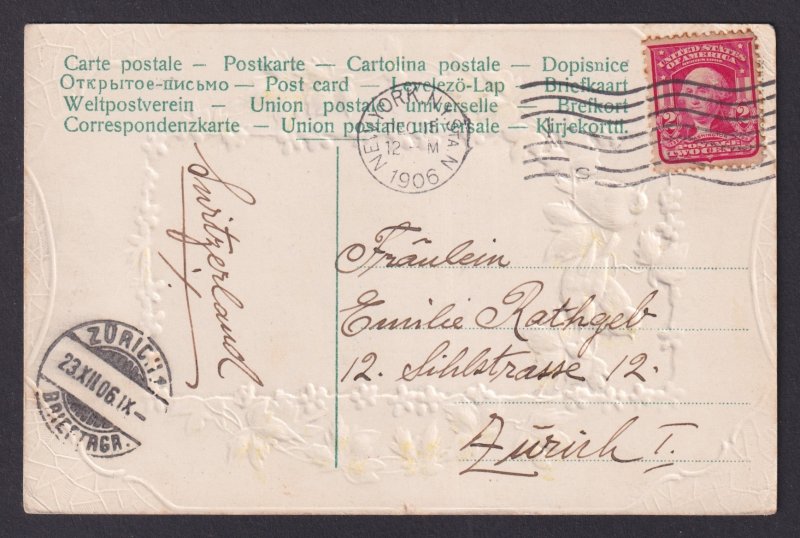 Carte postale – Postkarte – Cartolina postale – Dopisnice
Открытое-письмо – Post card – Levelezö-Lap – Briefkaart
Weltpostverein – Union postale universelle – Brefkort
Correspondenzkarte – Union postale universale – Kirjekortti.
UNITED STATES
OF AMERICA
2 2
POSTAGE
TWO CENTS
NEW YORK, N.Y. STA N
12 M
1906
S
Switzerland
Fräulein
Emilie Rathgeb
12. Sihlstrasse 12.
Zürich I.
ZÜRICH 1
23.XII.06.IX–
BRIEFTRGR.